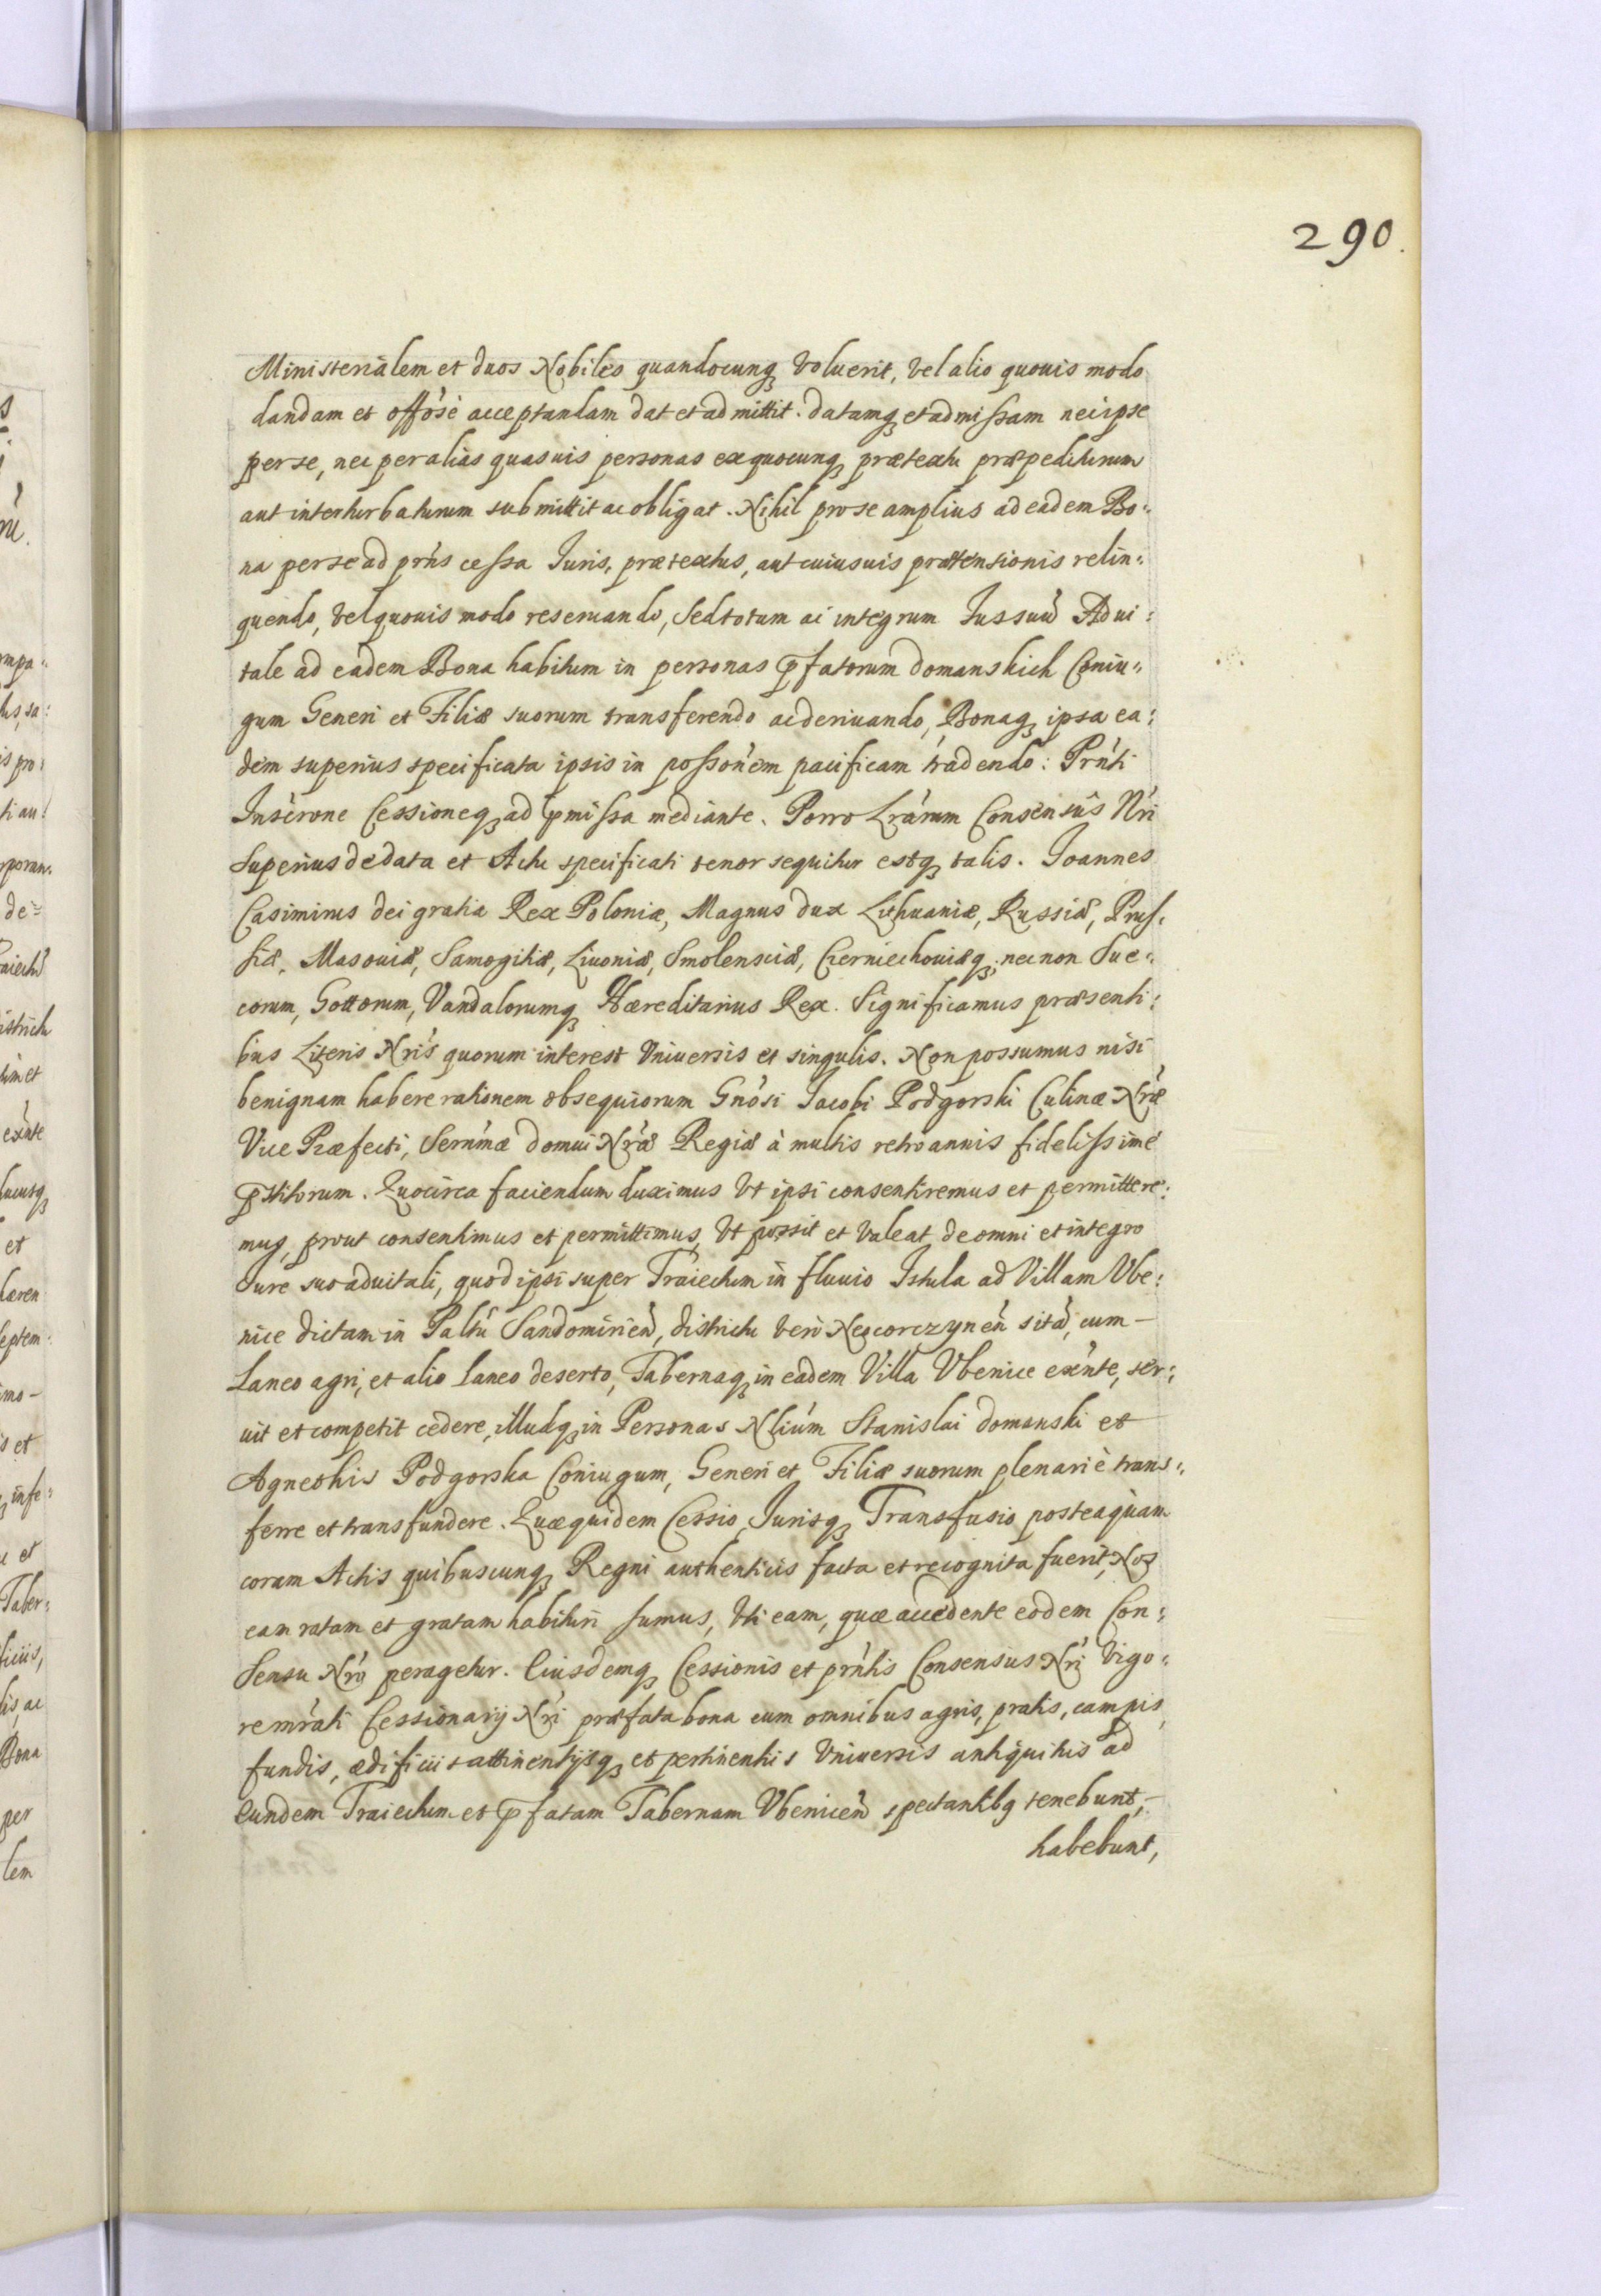 290.
Ministerialem et duos Nobiles quandocunq₃ voluerit, vel alio quouis modo
dandam et offōsè acceptandam dat et admittit. datamq₃ et admissam nec ipse
per se, nec per alias quasuis personas ex quocunq₃ prætextu præpediturum
aut interturbaturum submittit ac obligat. Nihil pro se amplius ad eadem Bo:
na per se ad prńs cessa Iuris, prætextus, aut cuiusuis prætensionis relin:
quendo, vel quouis modo reseruando, Sed totum ac integrum Ius suum̀ Adui:
tale ad eadem Bona habitum in personas p̄fatorum domanskich Coniu:
gum Generi et Filiæ suorum transferendo ac deriuando, Bonaq₃ ipsa ea:
dem superius specificata ipsis in possońem pacificam tradendo: Prńti
Inscrōne Cessioneq₃ ad p̄missa mediante. Porro Lrárum Consensûs Nŕi
Superius de data et Actu specificati tenor sequitur estq₃ talis. Joannes
Casimirus dei gratia Rex Poloniæ, Magnus dux Lithuaniæ, Russiæ, Prus:
siæ, Masouiæ, Samogitiæ, Liuoniæ, Smolensciæ, Czerniechouiæq₃, nec non Sue:
corum, Gottorum, Vandalorumq₃ Hæreditarius Rex. Significamus præsenti:
bus Literis Nŕis quorum interest Vniuersis et singulis. Non possumus nisi
benignam habere rationem obsequiorum Gnósi Jacobi Podgorski Culinæ Nŕæ
Vice Præfecti, Serńmæ domui Nŕæ Regiæ à multis retro annis fidelissimè
p̄stitorum. Quocirca faciendum duximus Vt ipsi consentiremus et permittere:
mus, prout consentimus et permittimus, Vt possit et valeat de omni et integro
Iure suo aduitali, quod ipsi super Traiectum in fluuio Istula ad Villam Vbe:
nice dictam in Pałtu Sandomirień, districtu vero Neocorczyneń sita, cum —
Laneo agri, et alio laneo deserto, Tabernaq₃ in eadem Villa Vbenice exńte, ser:
uit et competit cedere, illudq₃ in Personas Nlium Stanislai domanski et
Agnethis Podgorska Coniugum, Generi et Filiæ suorum plenariè trans:
ferre et transfundere. Quæquidem Cessio, Iurisq₃ Transfusio posteaquam
coram Actis quibuscunq₃ Regni authenticis facta et recognita fuerit, Nos
eam ratam et gratam habituri sumus, Vti eam, quæ accedente eodem Con:
sensu Nŕo peragetur. Eiusdemq₃ Cessionis et prńtis Consensus Nŕi Vigo:
re mŕati Cessionarij Nŕi præfata bona cum omnibus agris, pratis, campis,
fundis, ædificiis attinentijsq₃ et pertinentiis Vniuersis antiquitus ad
Eundem Traiectum et p̄fatam Tabernam Vbeniceń spectantibq tenebunt, —
habebunt,